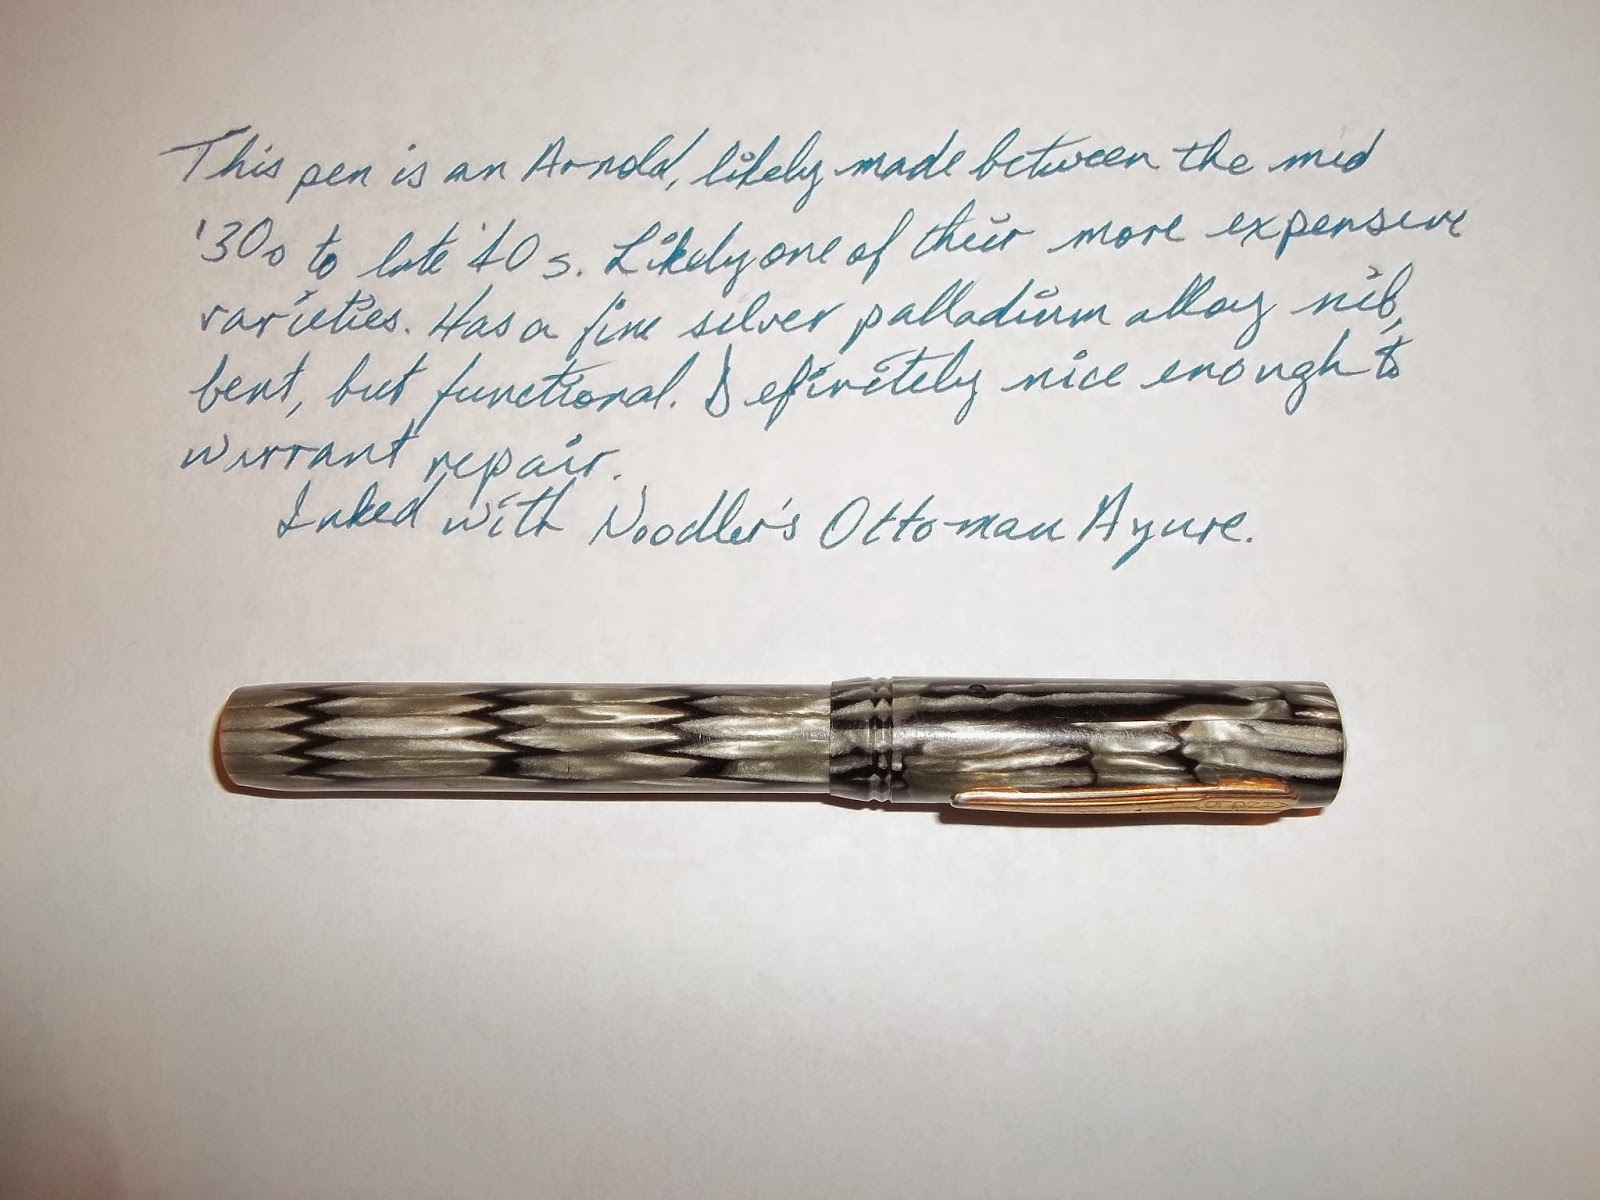 This pen is an Arnold, likely made between the mid
'30s to late '40s. Likely one of their more expensive
varieties. Has a fine silver palladium alloy nib,
bent, but functional. Definitely nice enough to
warrant repair.
Inked with Noodler's Ottoman Azure.